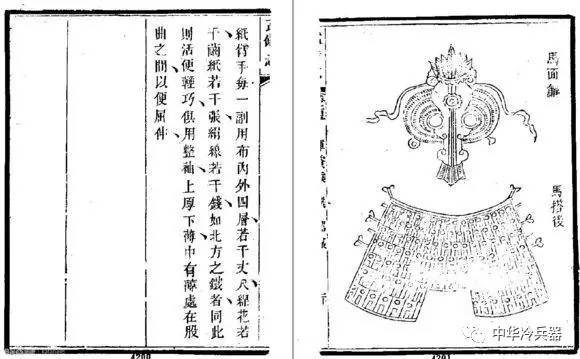 馬面簾
馬搭後
4201
中华冷兵器
武備志
紙臂手每一副用布內外四層若干丈尺綿花若
干繭紙若干張絹線若干錢如北方之鐵者同此
則活便輕巧俱用整袖上厚下薄中有處在股
曲之間以便屈伸
4200